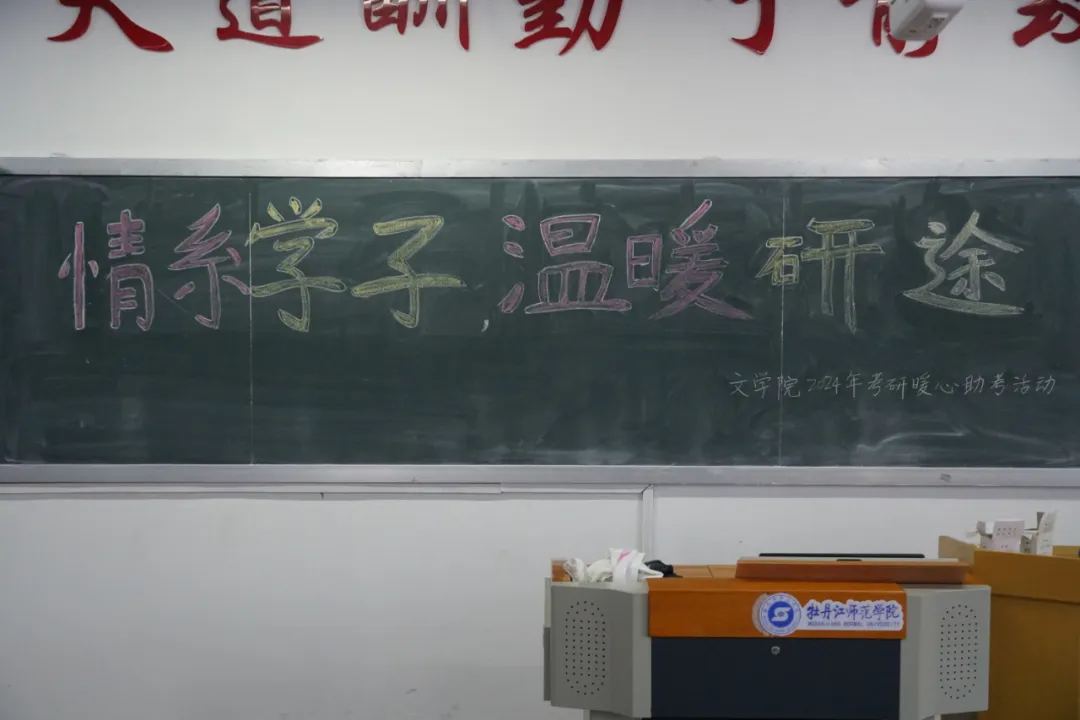 天道酬勤
情系学子,温暖研途
文学院2024年考研暖心助考活动
牡丹江师范学院
MUDANJIANG NORMAL UNIVERSITY